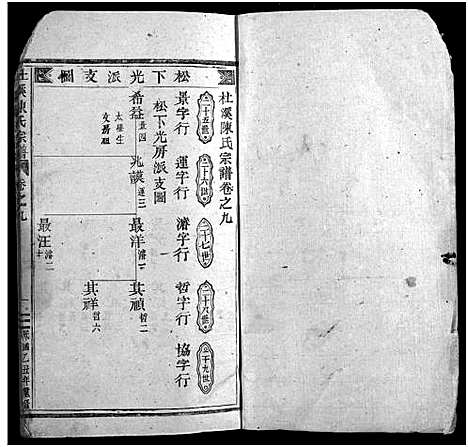 杜溪陳氏宗譜卷之九
松下光派支圖
二十五世
景字行
二十六世
運字行
二十七世
濬字行
二十八世
哲字行
二十九世
協字行
松下光房派支圖
希益 景四
太學生
支房祖
兆謨 運三
最洋 濬一
其禎 哲二
其祥 哲六
最汪 濬二
杜溪陳氏宗譜
卷之九
一